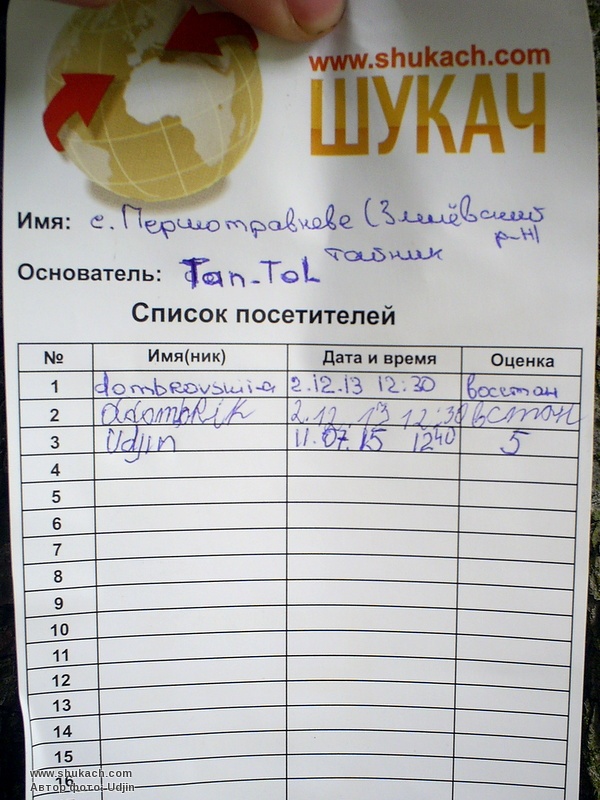 www.shukach.com
ШУКАЧ
Имя: с. Першотравневе (Змиёвский
р-н)
тайник
Основатель: Tan-Tol
Список посетителей
№ Имя(ник) Дата и время Оценка
1 2.12.13 12:30 восстан
2 2.12.13 12:30 встан
3 Udjin 11.07.15 12 40 5
4
5
6
7
8
9
10
11
12
13
14
15
16
www.shukach.com
Автор фото: Udjin